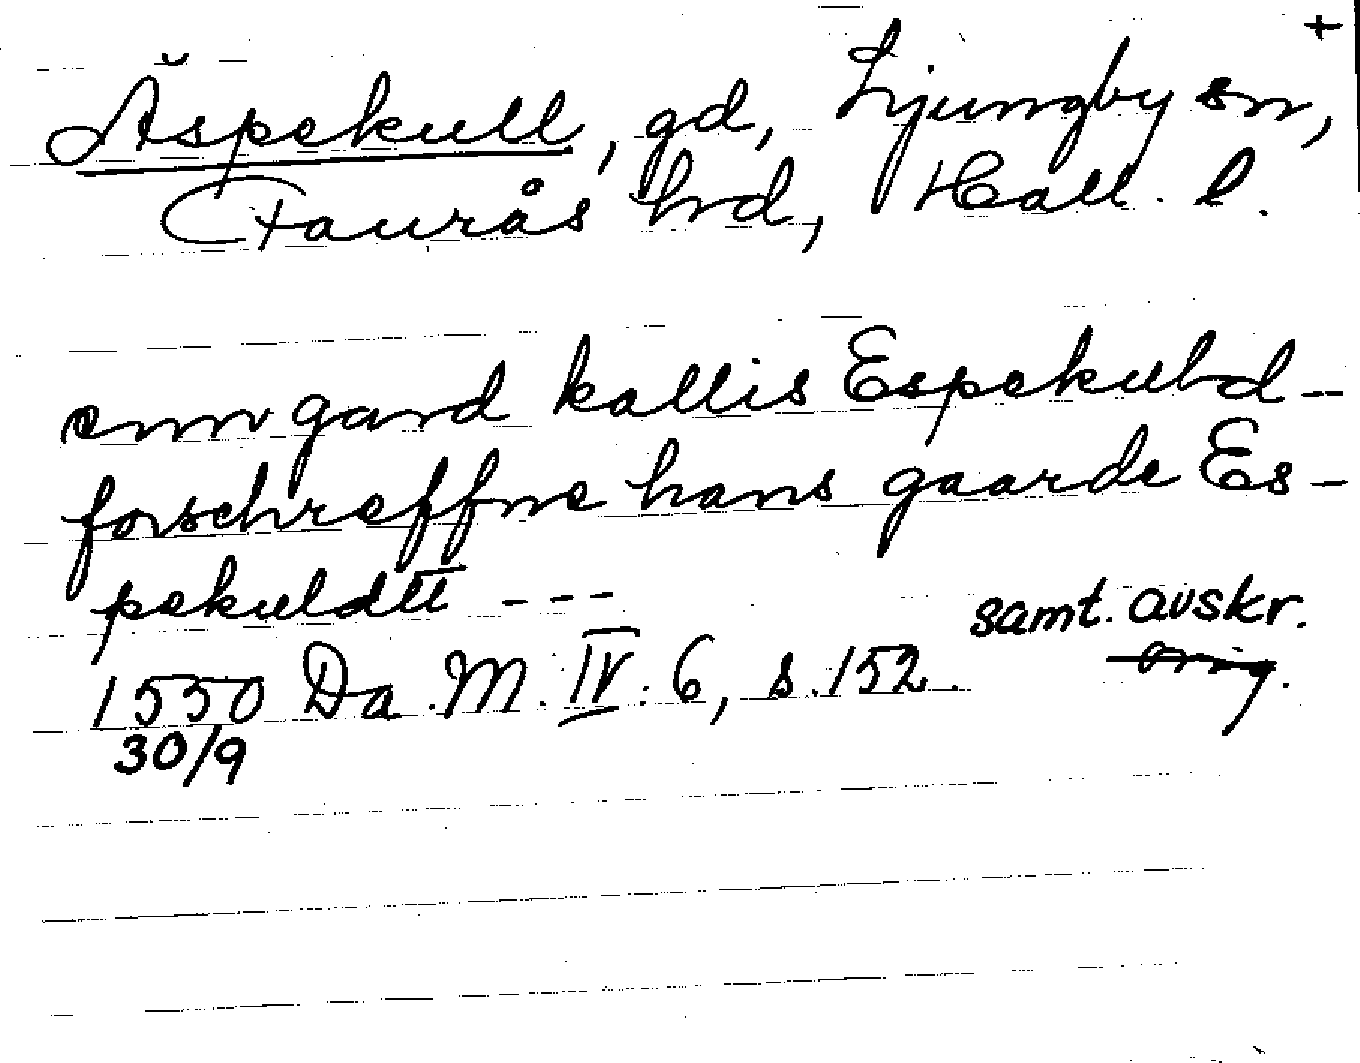 +
Äspekull, gd, Ljungby sn,
Faurås hrd, Hall. l.
enn gard kallis Espekuld –
forschreffne hans gaarde Es-
pekuldtt - - -
samt. avskr.
orig.
1550 Da. M. IV. 6, s. 152.
30/9